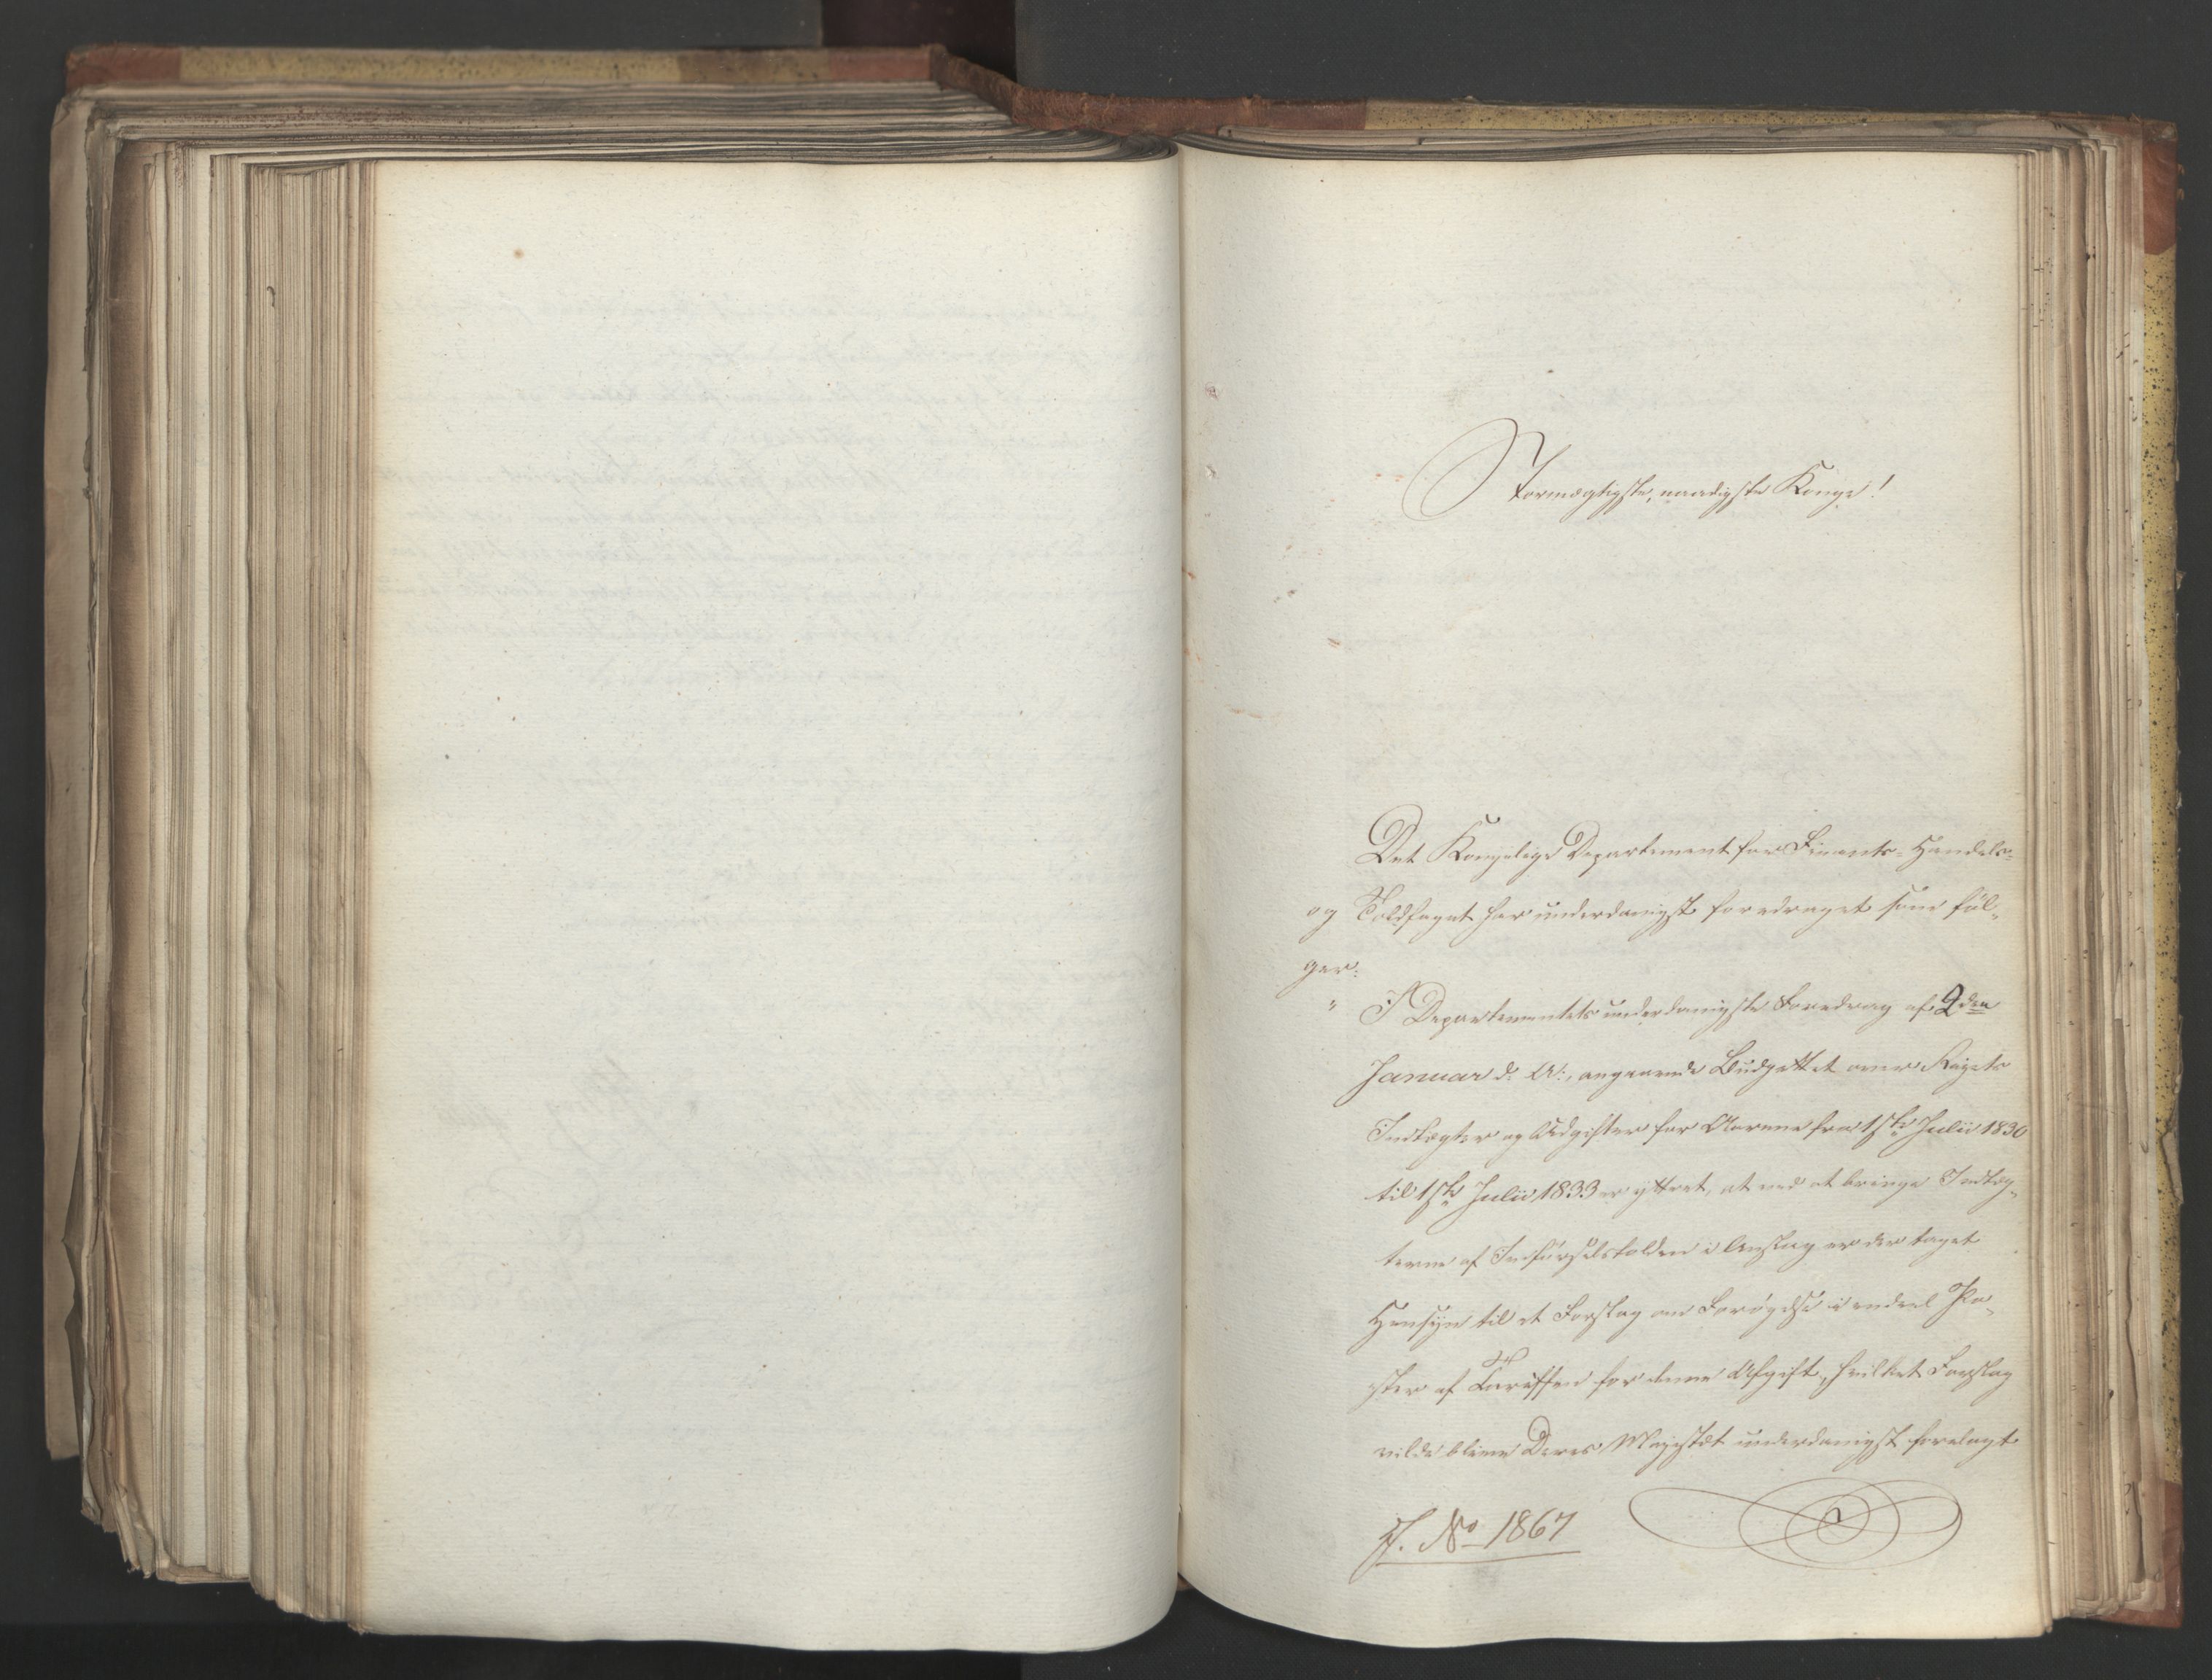 Stormægtigste, naadigste Konge!
Det Kongelige Departement for Finants- Handels-
og Toldfaget har underdanigst foredraget som føl-
ger:
" I Departementets underdanigste Foredrag af 9den
Januar d. A:, angaaende Budgettet over Rigets
Indtægter og Udgifter for Aarene fra 1ste Julii 1830
til 1ste Julii 1833 er yttret, at ved at bringe Indtæg-
terne af Indførselstolden i Anslag er der taget
Hensyn til et Forslag om Forøgelse i endeel Po-
ster af Tariffen for denne Afgift, hvilket Forslag
vilde blive Deres Majestæt underdanigst forelagt
J. No 1867